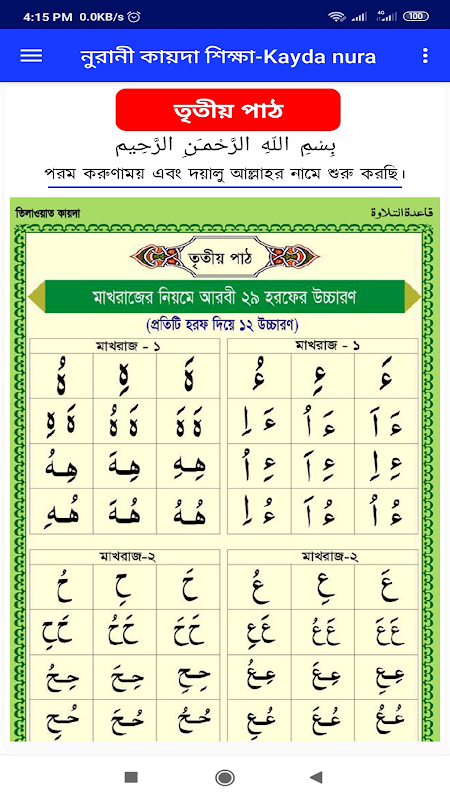 4:15 PM 0.0KB/s 4G 100
নুরানী কায়দা শিক্ষা-Kayda nura
তৃতীয় পাঠ
بِسْمِ اللهِ الرَّحْمـَنِ الرَّحِيمِ
পরম করুণাময় এবং দয়ালু আল্লাহর নামে শুরু করছি।
তিলাওয়াত কায়দা قاعدة التلاوة
তৃতীয় পাঠ
মাখরাজের নিয়মে আরবী ২৯ হরফের উচ্চারণ
(প্রতিটি হরফ দিয়ে ১২ উচ্চারণ)
মাখরাজ - ১
ءَ ءِ ءُ
ءَ اَ ءَ اُ ءَ اِ
ءِ اِ ءِ اَ ءِ اُ
ءُ اُ ءُ اَ ءُ اِ
মাখরাজ - ১
هَ هِ هُ
هَ هَ هَ هُ هَ هِ
هِهِ هِهَ هِهُ
هُهُ هُهَ هُهِ
মাখরাজ-২
عَ عِ عُ
عَعَ عَعُ عَعِ
عِعِ عِعَ عِعُ
عُعُ عُعَ عُعِ
মাখরাজ-২
حَ حِ حُ
حَحَ حَحُ حَحِ
حِحِ حِحَ حِحُ
حُحُ حُحَ حُحِ